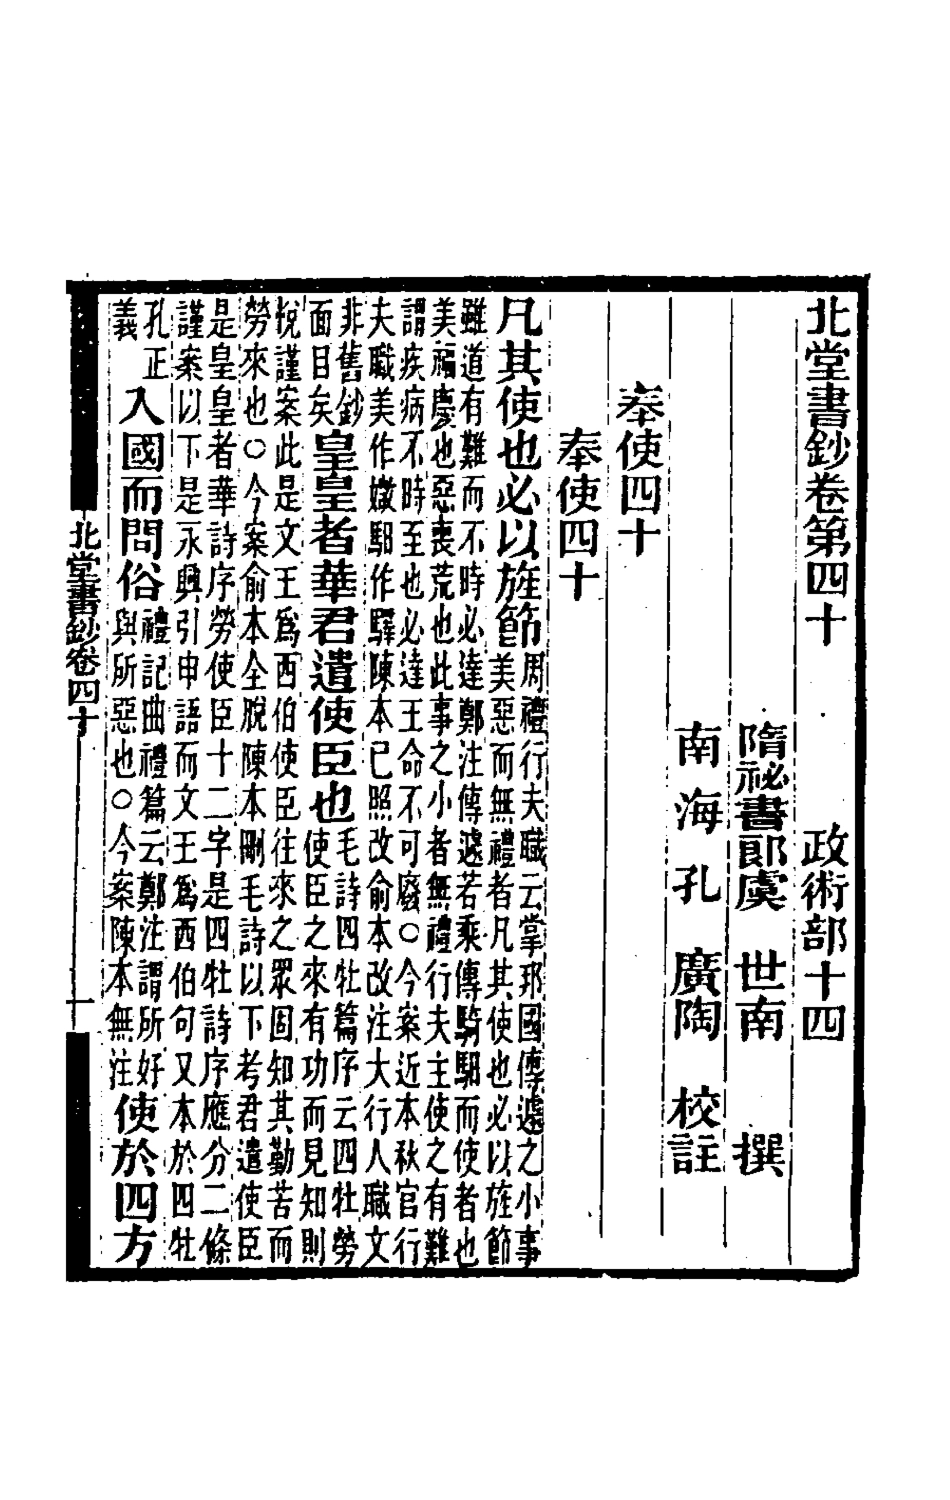 北堂書鈔卷第四十 政術部十四
隋祕書郎虞 世南 撰
南海孔 廣陶 校註
奉使四十
奉使四十
凡其使也必以旌節 周禮行夫職云掌邦國傳遽之小事
美惡而無禮者凡其使也必以旌節
雖道有難而不時必達鄭注傳遽若乘傳騎馹而使者也
美福慶也惡喪荒也此事之小者無禮行夫主使之有難
謂疾病不時至也必達王命不可廢○今案近本秋官行
夫職美作媺馹作驛陳本已照改俞本改注大行人職文
非舊鈔
面目矣 皇皇者華君遣使臣也 毛詩四牡篇序云四牡勞
使臣之來有功而見知則
悅謹案此是文王爲西伯使臣往來之眾固知其勤苦而
勞來也○今案俞本全脫陳本刪毛詩以下考君遣使臣
是皇皇者華詩序勞使臣十二字是四牡詩序應分二條
謹案以下是永興引申語而文王爲西伯句又本於四牡
孔正
義 入國而問俗 禮記曲禮篇云鄭注謂所好
與所惡也○今案陳本無注 使於四方
北堂書鈔卷四十 一